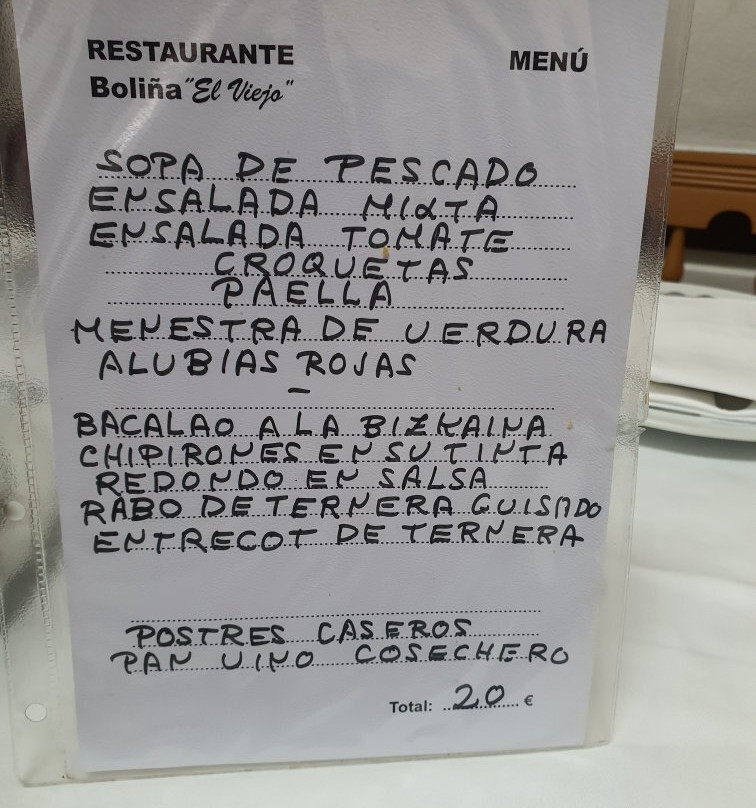 RESTAURANTE
MENÚ
Boliña "El Viejo"
SOPA DE PESCADO
ENSALADA MIXTA
ENSALADA TOMATE
CROQUETAS
PAELLA
MENESTRA DE VERDURA
ALUBIAS ROJAS
-
BACALAO A LA BIZKAINA
CHIPIRONES EN SU TINTA
REDONDO EN SALSA
RABO DE TERNERA GUISADO
ENTRECOT DE TERNERA
POSTRES CASEROS
PAN VINO COSECHERO
Total: 20 €